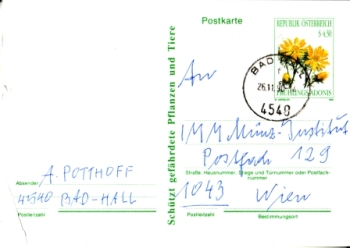 Postkarte
REPUBLIK ÖSTERREICH
S 4,50
FRÜHLINGSADONIS
BAD HALL
26.11.
4540
Schützt gefährdete Pflanzen und Tiere
An
IMM Münz-Institut
Postfach 129
Straße, Hausnummer, Stiege und Türnummer oder Postfach-
nummer
1043 Wien
Postleitzahl
Bestimmungsort
A. POTTHOFF
Absender
4540 BAD-HALL
Postleitzahl